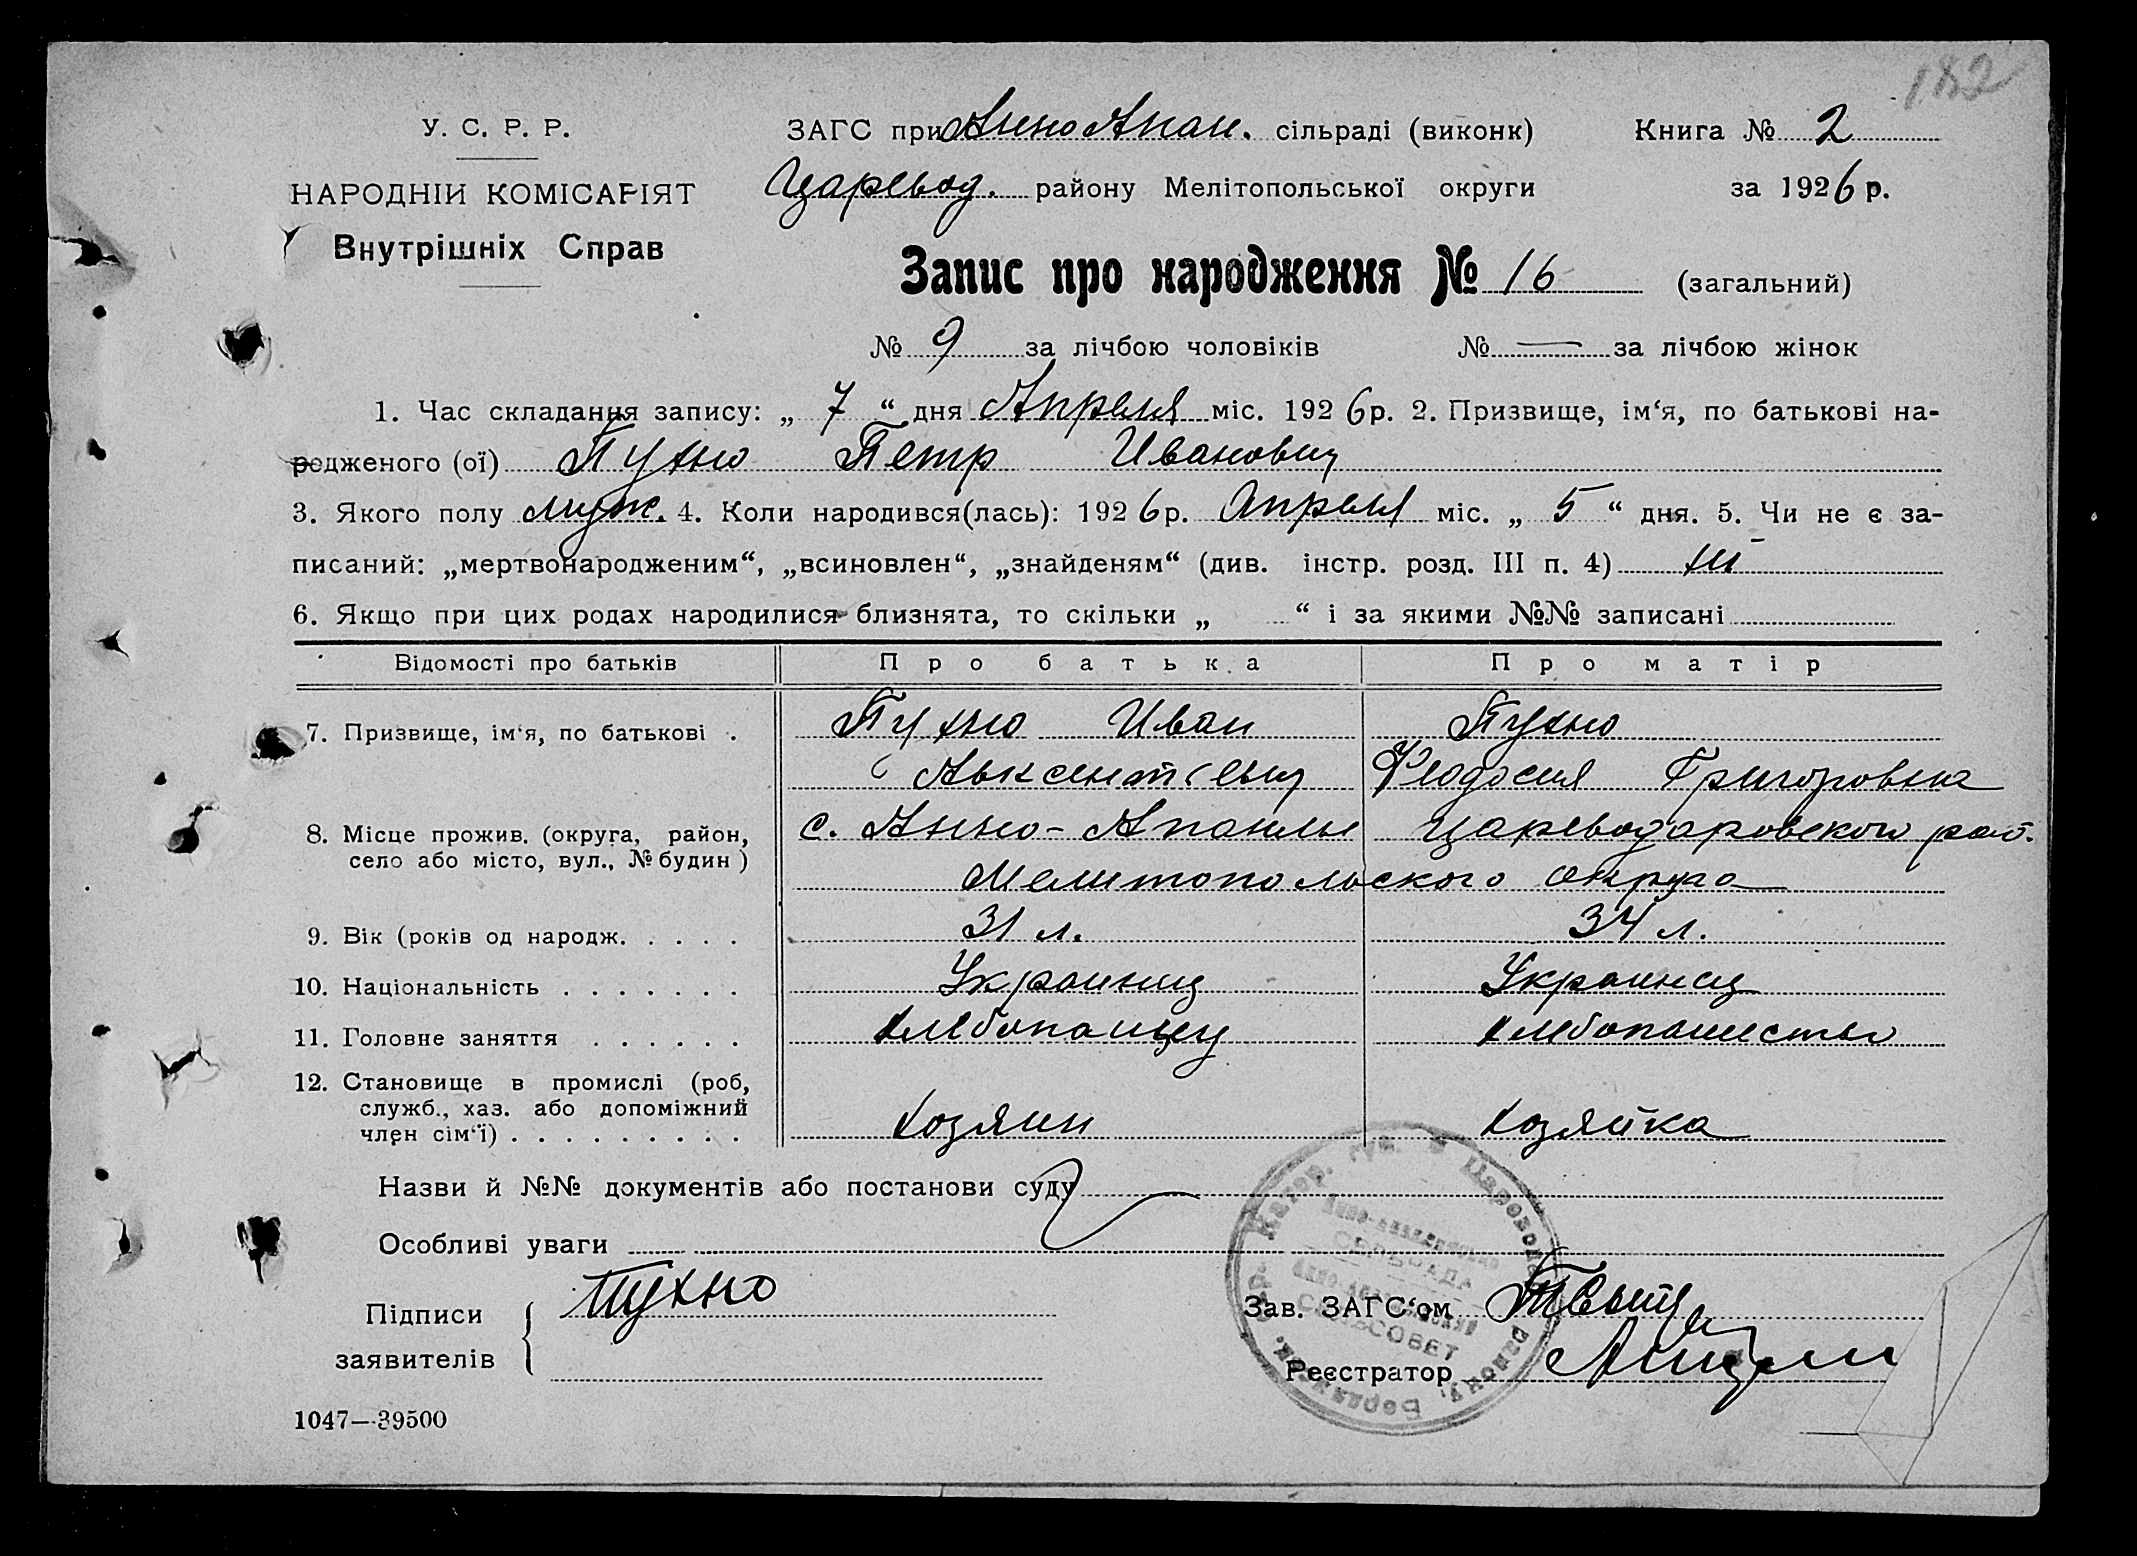 182
У. С. Р. Р.
НАРОДНІЙ КОМІСАРІЯТ
Внутрішніх Справ
ЗАГС при Анно Апан. сільраді (виконк)
Царевод. району Мелітопольської округи
Книга № 2
за 1926 р.
Запис про народження № 16 (загальний)
№ 9 за лічбою чоловіків № — за лічбою жінок
1. Час складання запису: „ 7 “ дня Апреля міс. 1926 р. 2. Призвище, ім‘я, по батькові на-
родженого (ої) Пухно Петр Иванович
3. Якого полу муж. 4. Коли народився(лась): 1926 р. Апреля міс. „ 5 “ дня. 5. Чи не є за-
писаний: „мертвонародженим“, „всиновлен“, „знайденям“ (див. інстр. розд. III п. 4)
6. Якщо при цих родах народилися близнята, то скільки „ “ і за якими №№ записані
Відомості про батьків Про батька Про матір
7. Призвище, ім‘я, по батькові . Пухно Иван Пухно
Авксентьевич Феодосия Григоровна
8. Місце прожив. (округа, район, село або місто, вул., № будин ) с. Анно-Апанлы Цареводаровского рай.
Мелитопольского округа
9. Вік (років од народж. . . . . 31 л. 34 л.
10. Національність . . . . . . . Украинец Украинец
11. Головне заняття . . . . . . хлебопашец хлебопашество
12. Становище в промислі (роб,
служб., хаз. або допоміжний
член сім‘ї) . . . . . . . . . хозяин хозяйка
Назви й №№ документів або постанови суду
Особливі уваги
Підписи
заявителів
Пухно
Зав. ЗАГС‘ом
Реєстратор
СІЛЬРАДА
СЕЛЬСОВЕТ
1047—39500